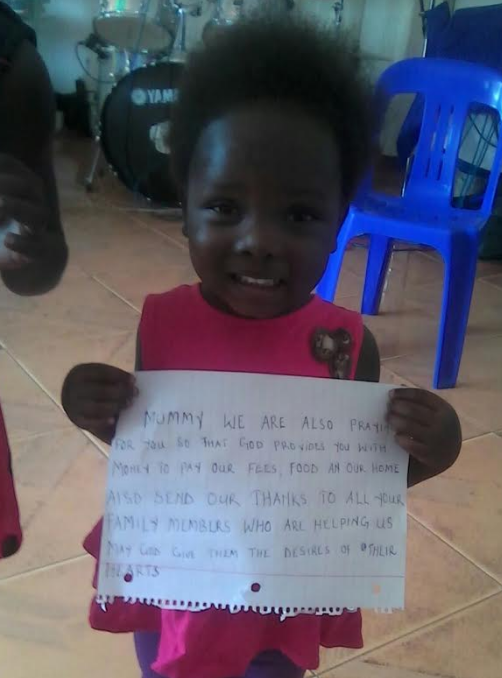 YAMA
MUMMY WE ARE ALSO PRAYI
FOR YOU SO THAT GOD PROVIDES YOU WITH
MONEY TO PAY OUR FEES, FOOD AN OUR HOME
AlSO SEND OUR THANKS TO ALL YOUR
FAMILY MEMBERS WHO ARE HELPING US
MAY GOD GIVE THEM THE DESIRES OF THEIR
HEARTS